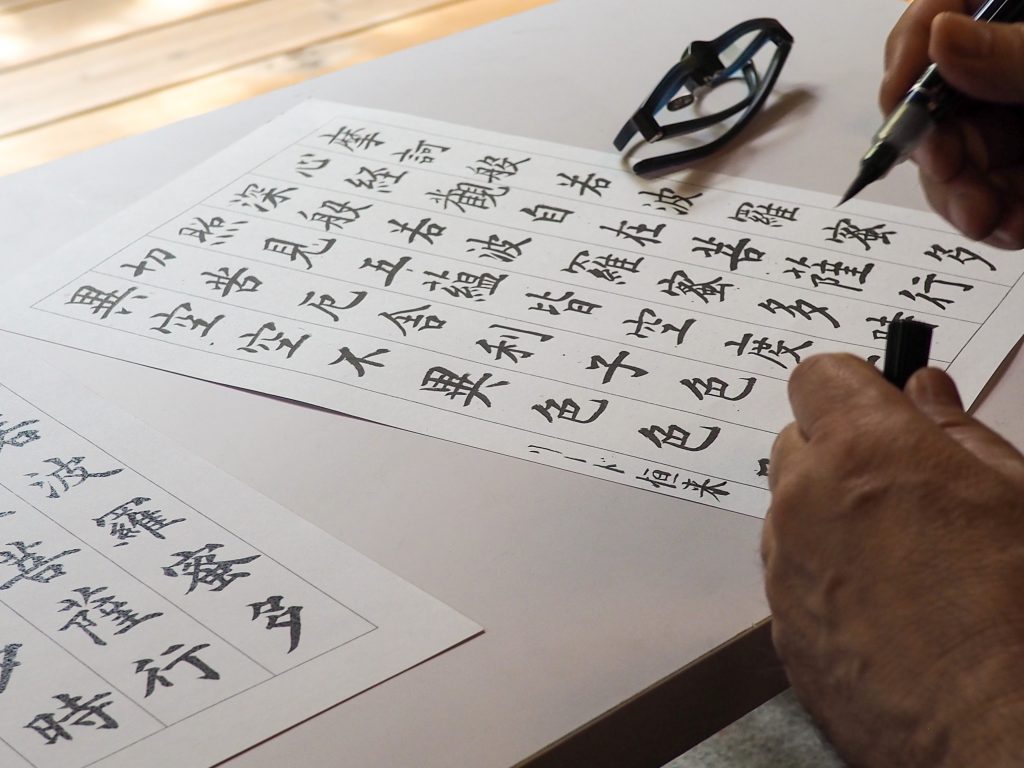 摩訶般若波羅蜜多
心経觀自在菩薩行
深般若波羅蜜多時
照見五蘊皆空度
切苦厄舍利子色
異空空不異色色
リード恒来
若波羅蜜多
菩薩行
時